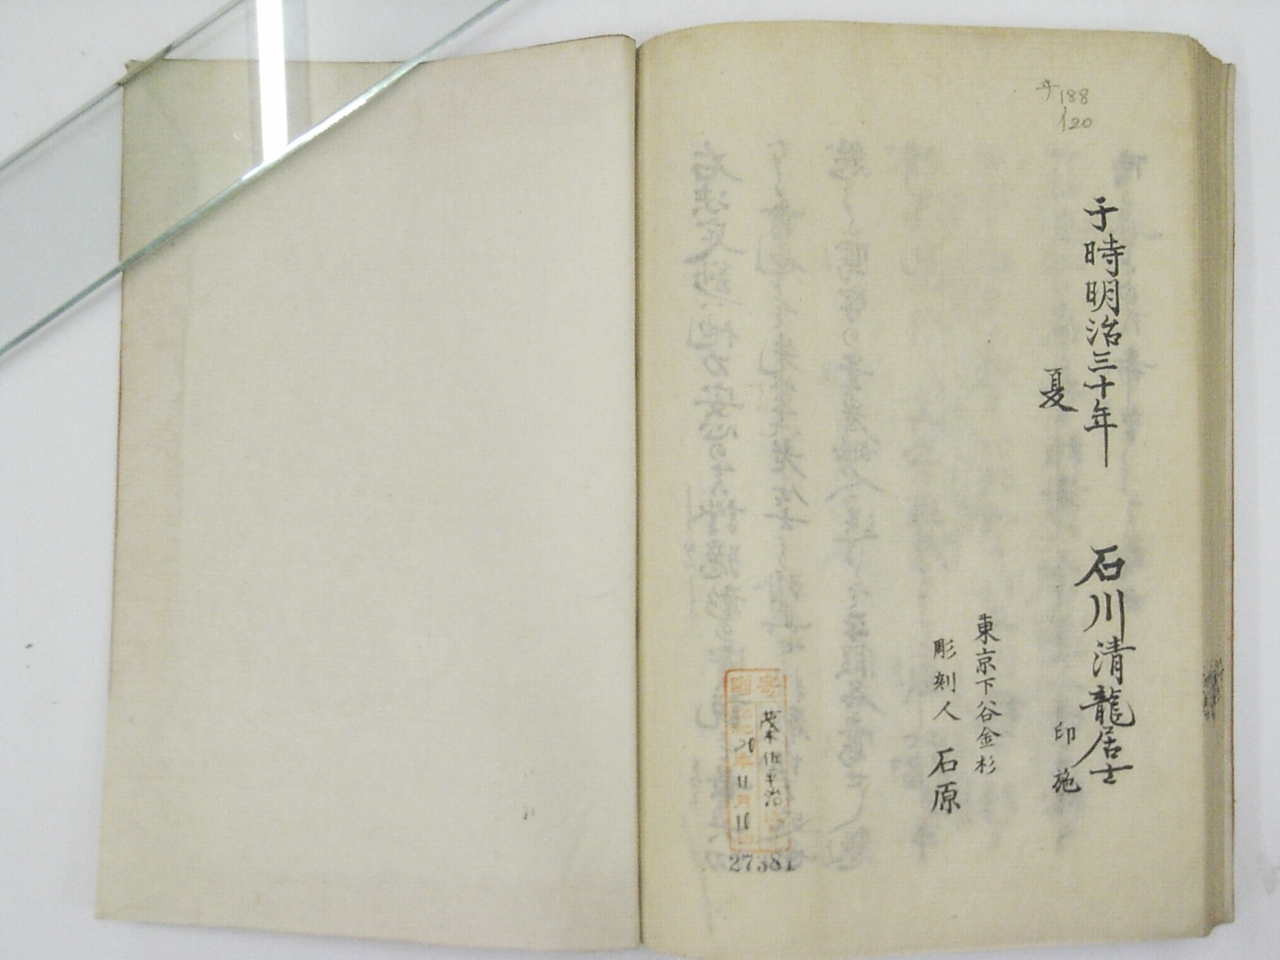 188
120
于時明治三十年
夏
石川清龍居士
印施
東京下谷金杉
彫刻人 石原
寄
昭和20年11月10日
27381